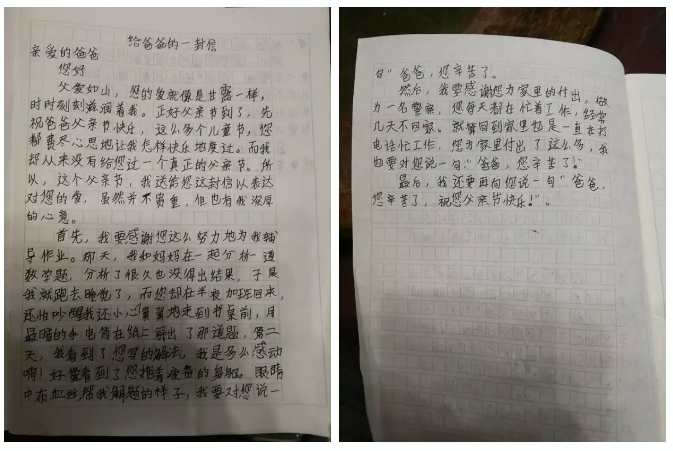 给爸爸的一封信
亲爱的爸爸
您好
父爱如山，您的爱就像是甘露一样，
时时刻刻滋润着我。正好父亲节到了，先
祝爸爸父亲节快乐，这么多个儿童节，您
都费尽心思地让我怎样快乐地度过。而我
却从来没有给您过一个真正的父亲节。所
以，这个父亲节，我送给您这封信以表达
对您的爱，虽然并不贵重，但也有我深厚
的心意。
首先，我要感谢您这么努力地为我辅
导作业。那天，我和妈妈在一起分析一道
数学题，分析了很久也没得出结果，于是
我就跑去睡觉了，而您却在半夜加班回来，
还怕吵醒我还小心翼翼地走到书桌前，用
最暗的手电筒在纸上解出了那道题，第二
天，我看到了您写的解法，我是多么感动
啊！好像看到了您拖着疲惫的身躯，眼睛
中布血丝帮我解题的样子，我要对您说一
句“爸爸，您辛苦了。
然后，我要感谢您为家里的付出，做
为一名警察，您每天都在忙着工作，经常
几天不回家。就算回到家里也是一直在打
电话忙工作，您为家里付出了这么多，我
也要对您说一句：“爸爸，您辛苦了！”
最后，我还要再向您说一句“爸爸，
您辛苦了，祝您父亲节快乐！”。